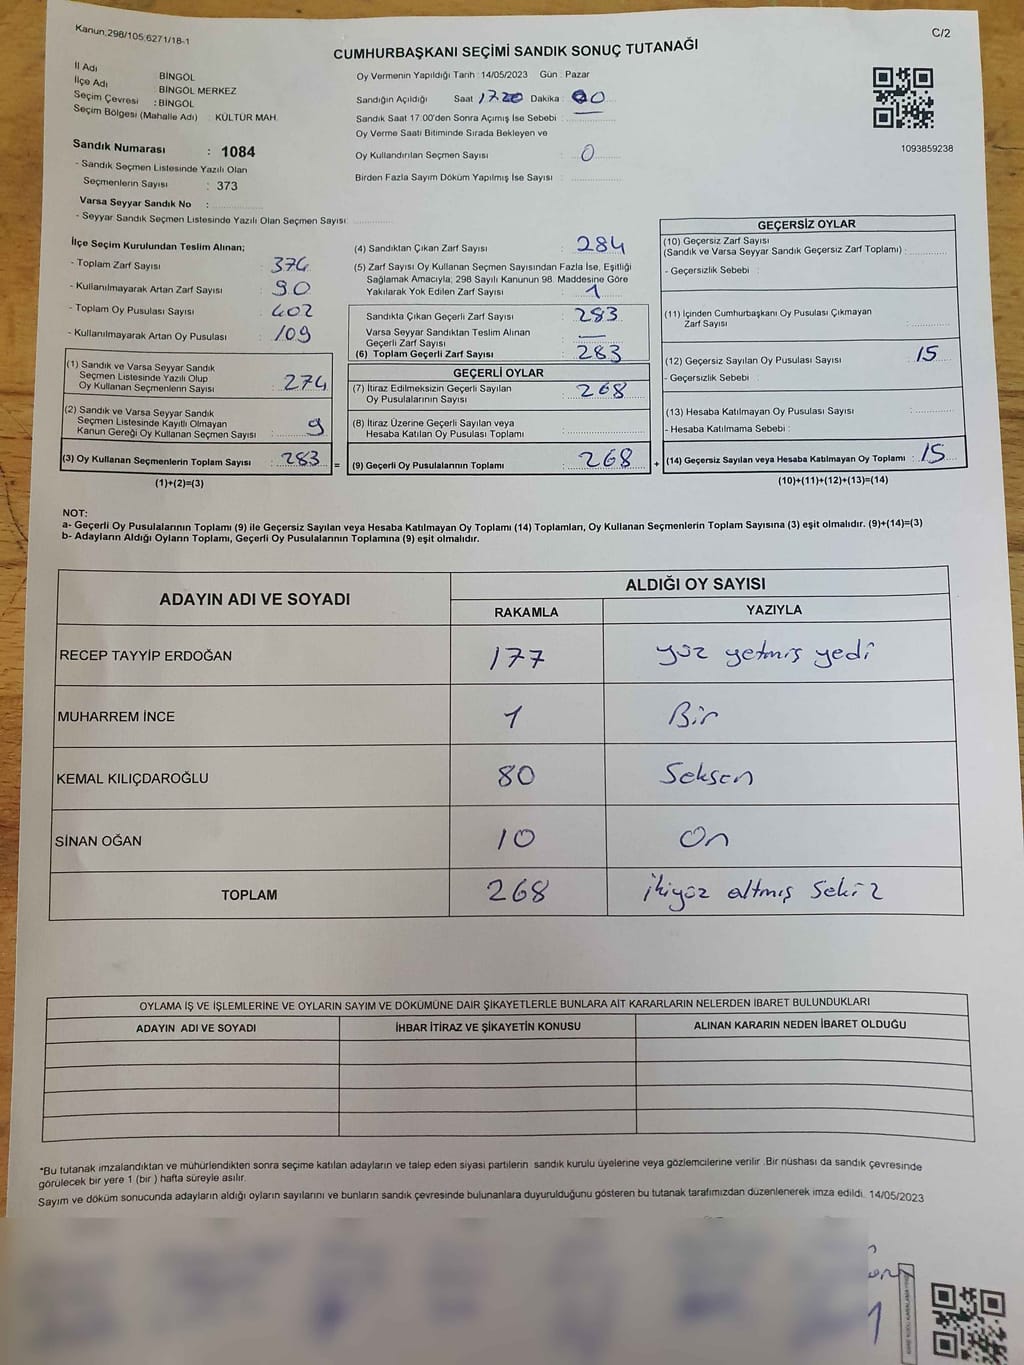 Kanun.298/105,6271/18-1
C/2
CUMHURBAŞKANI SEÇİMİ SANDIK SONUÇ TUTANAĞI
İl Adı BİNGÖL
İlçe Adı : BİNGÖL MERKEZ
Seçim Çevresi : BİNGÖL
Seçim Bölgesi (Mahalle Adı) : KÜLTÜR MAH.
Sandık Numarası : 1084
- Sandık Seçmen Listesinde Yazılı Olan
Seçmenlerin Sayısı : 373
Varsa Seyyar Sandık No :
- Seyyar Sandık Seçmen Listesinde Yazılı Olan Seçmen Sayısı:
Oy Vermenin Yapıldığı Tarih : 14/05/2023 Gün : Pazar
Sandığın Açıldığı Saat 17.20 Dakika : 00
Sandık Saat 17.00'den Sonra Açımış İse Sebebi :
Oy Verme Saati Bitiminde Sırada Bekleyen ve
Oy Kullandırılan Seçmen Sayısı : 0
Birden Fazla Sayım Döküm Yapılmış İse Sayısı :
1093859238
İlçe Seçim Kurulundan Teslim Alınan;
- Toplam Zarf Sayısı : 374
- Kullanılmayarak Artan Zarf Sayısı : 90
- Toplam Oy Pusulası Sayısı : 402
- Kullanılmayarak Artan Oy Pusulası : 109
(1) Sandık ve Varsa Seyyar Sandık
Seçmen Listesinde Yazılı Olup
Oy Kullanan Seçmenlerin Sayısı : 274
(2) Sandık ve Varsa Seyyar Sandık
Seçmen Listesinde Kayıtlı Olmayan
Kanun Gereği Oy Kullanan Seçmen Sayısı : 9
(3) Oy Kullanan Seçmenlerin Toplam Sayısı : 283 =
(1)+(2)=(3)
(4) Sandıktan Çıkan Zarf Sayısı : 284
(5) Zarf Sayısı Oy Kullanan Seçmen Sayısından Fazla İse, Eşitliği
Sağlamak Amacıyla; 298 Sayılı Kanunun 98. Maddesine Göre
Yakılarak Yok Edilen Zarf Sayısı : 1
Sandıkta Çıkan Geçerli Zarf Sayısı : 283
Varsa Seyyar Sandıktan Teslim Alınan
Geçerli Zarf Sayısı : —
(6) Toplam Geçerli Zarf Sayısı : 283
GEÇERLİ OYLAR
(7) İtiraz Edilmeksizin Geçerli Sayılan
Oy Pusulalarının Sayısı : 268
(8) İtiraz Üzerine Geçerli Sayılan veya
Hesaba Katılan Oy Pusulası Toplamı :
(9) Geçerli Oy Pusulalarının Toplamı : 268 +
GEÇERSİZ OYLAR
(10) Geçersiz Zarf Sayısı
(Sandık ve Varsa Seyyar Sandık Geçersiz Zarf Toplamı) :
- Geçersizlik Sebebi :
(11) İçinden Cumhurbaşkanı Oy Pusulası Çıkmayan
Zarf Sayısı :
(12) Geçersiz Sayılan Oy Pusulası Sayısı : 15
- Geçersizlik Sebebi :
(13) Hesaba Katılmayan Oy Pusulası Sayısı :
- Hesaba Katılmama Sebebi :
(14) Geçersiz Sayılan veya Hesaba Katılmayan Oy Toplamı : 15
(10)+(11)+(12)+(13)=(14)
NOT:
a- Geçerli Oy Pusulalarının Toplamı (9) ile Geçersiz Sayılan veya Hesaba Katılmayan Oy Toplamı (14) Toplamları, Oy Kullanan Seçmenlerin Toplam Sayısına (3) eşit olmalıdır. (9)+(14)=(3)
b- Adayların Aldığı Oyların Toplamı, Geçerli Oy Pusulalarının Toplamına (9) eşit olmalıdır.
ADAYIN ADI VE SOYADI
ALDIĞI OY SAYISI
RAKAMLA YAZIYLA
RECEP TAYYİP ERDOĞAN 177 yüz yetmiş yedi
MUHARREM İNCE 1 Bir
KEMAL KILIÇDAROĞLU 80 Seksen
SİNAN OĞAN 10 On
TOPLAM 268 ikiyüz altmış sekiz
OYLAMA İŞ VE İŞLEMLERİNE VE OYLARIN SAYIM VE DÖKÜMÜNE DAİR ŞİKAYETLERLE BUNLARA AİT KARARLARIN NELERDEN İBARET BULUNDUKLARI
ADAYIN ADI VE SOYADI İHBAR İTİRAZ VE ŞİKAYETİN KONUSU ALINAN KARARIN NEDEN İBARET OLDUĞU
*Bu tutanak imzalandıktan ve mühürlendikten sonra seçime katılan adayların ve talep eden siyasi partilerin sandık kurulu üyelerine veya gözlemcilerine verilir. Bir nüshası da sandık çevresinde
görülecek bir yere 1 (bir ) hafta süreyle asılır.
Sayım ve döküm sonucunda adayların aldığı oyların sayılarını ve bunların sandık çevresinde bulunanlara duyurulduğunu gösteren bu tutanak tarafımızdan düzenlenerek imza edildi. 14/05/2023